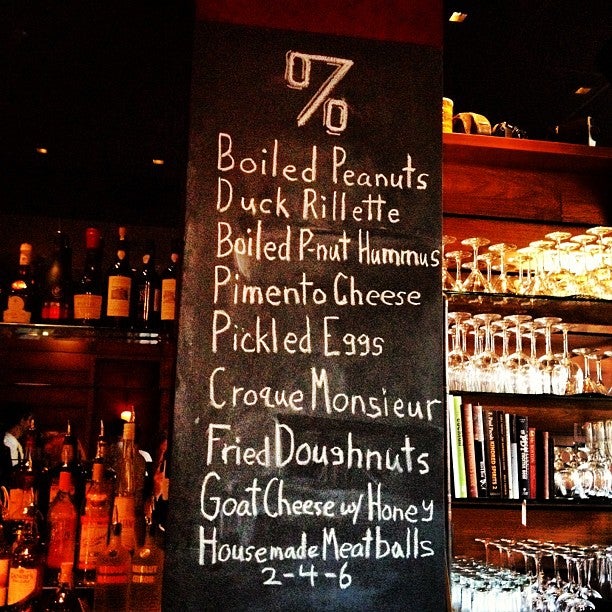 %
Boiled Peanuts
Duck Rillette
Boiled P-nut Hummus
Pimento Cheese
Pickled Eggs
Croque Monsieur
Fried Doughnuts
Goat Cheese w/ Honey
Housemade Meatballs
2-4-6